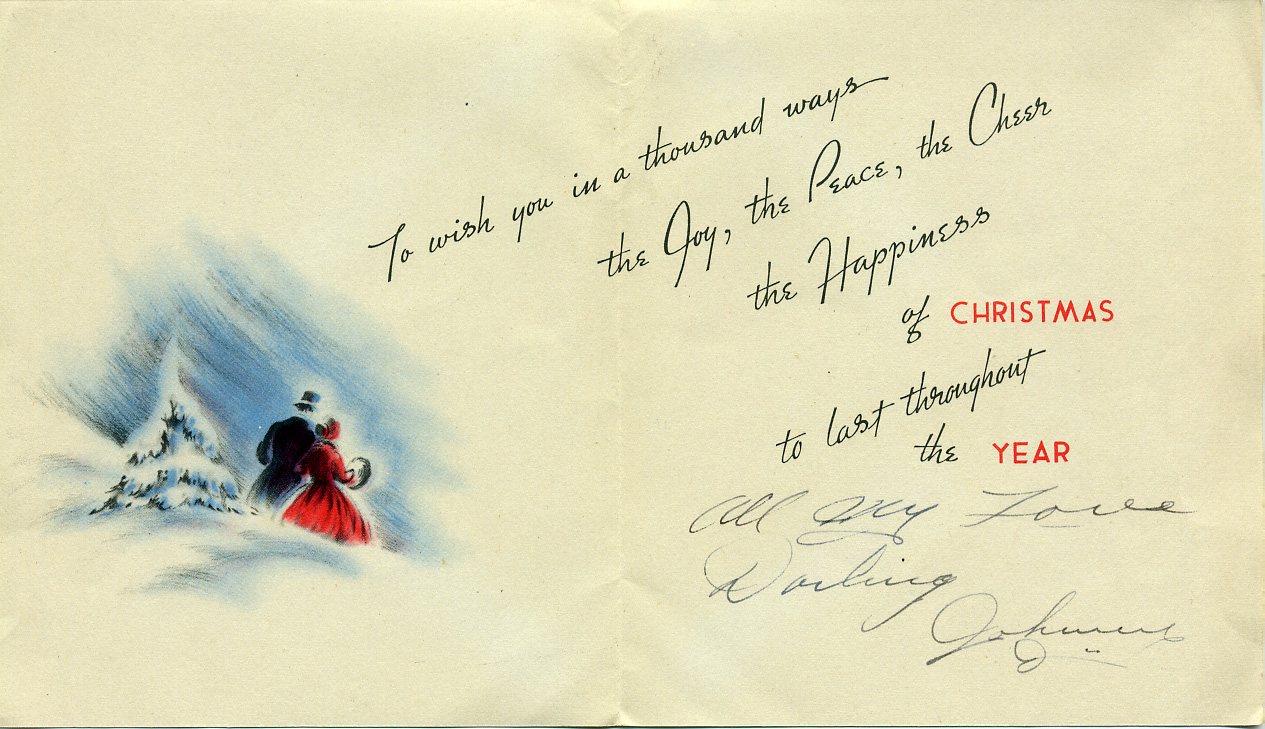 To wish you in a thousand ways
the Joy, the Peace, the Cheer
the Happiness
of CHRISTMAS
to last throughout
the YEAR
All My Love
Darling
Johnny